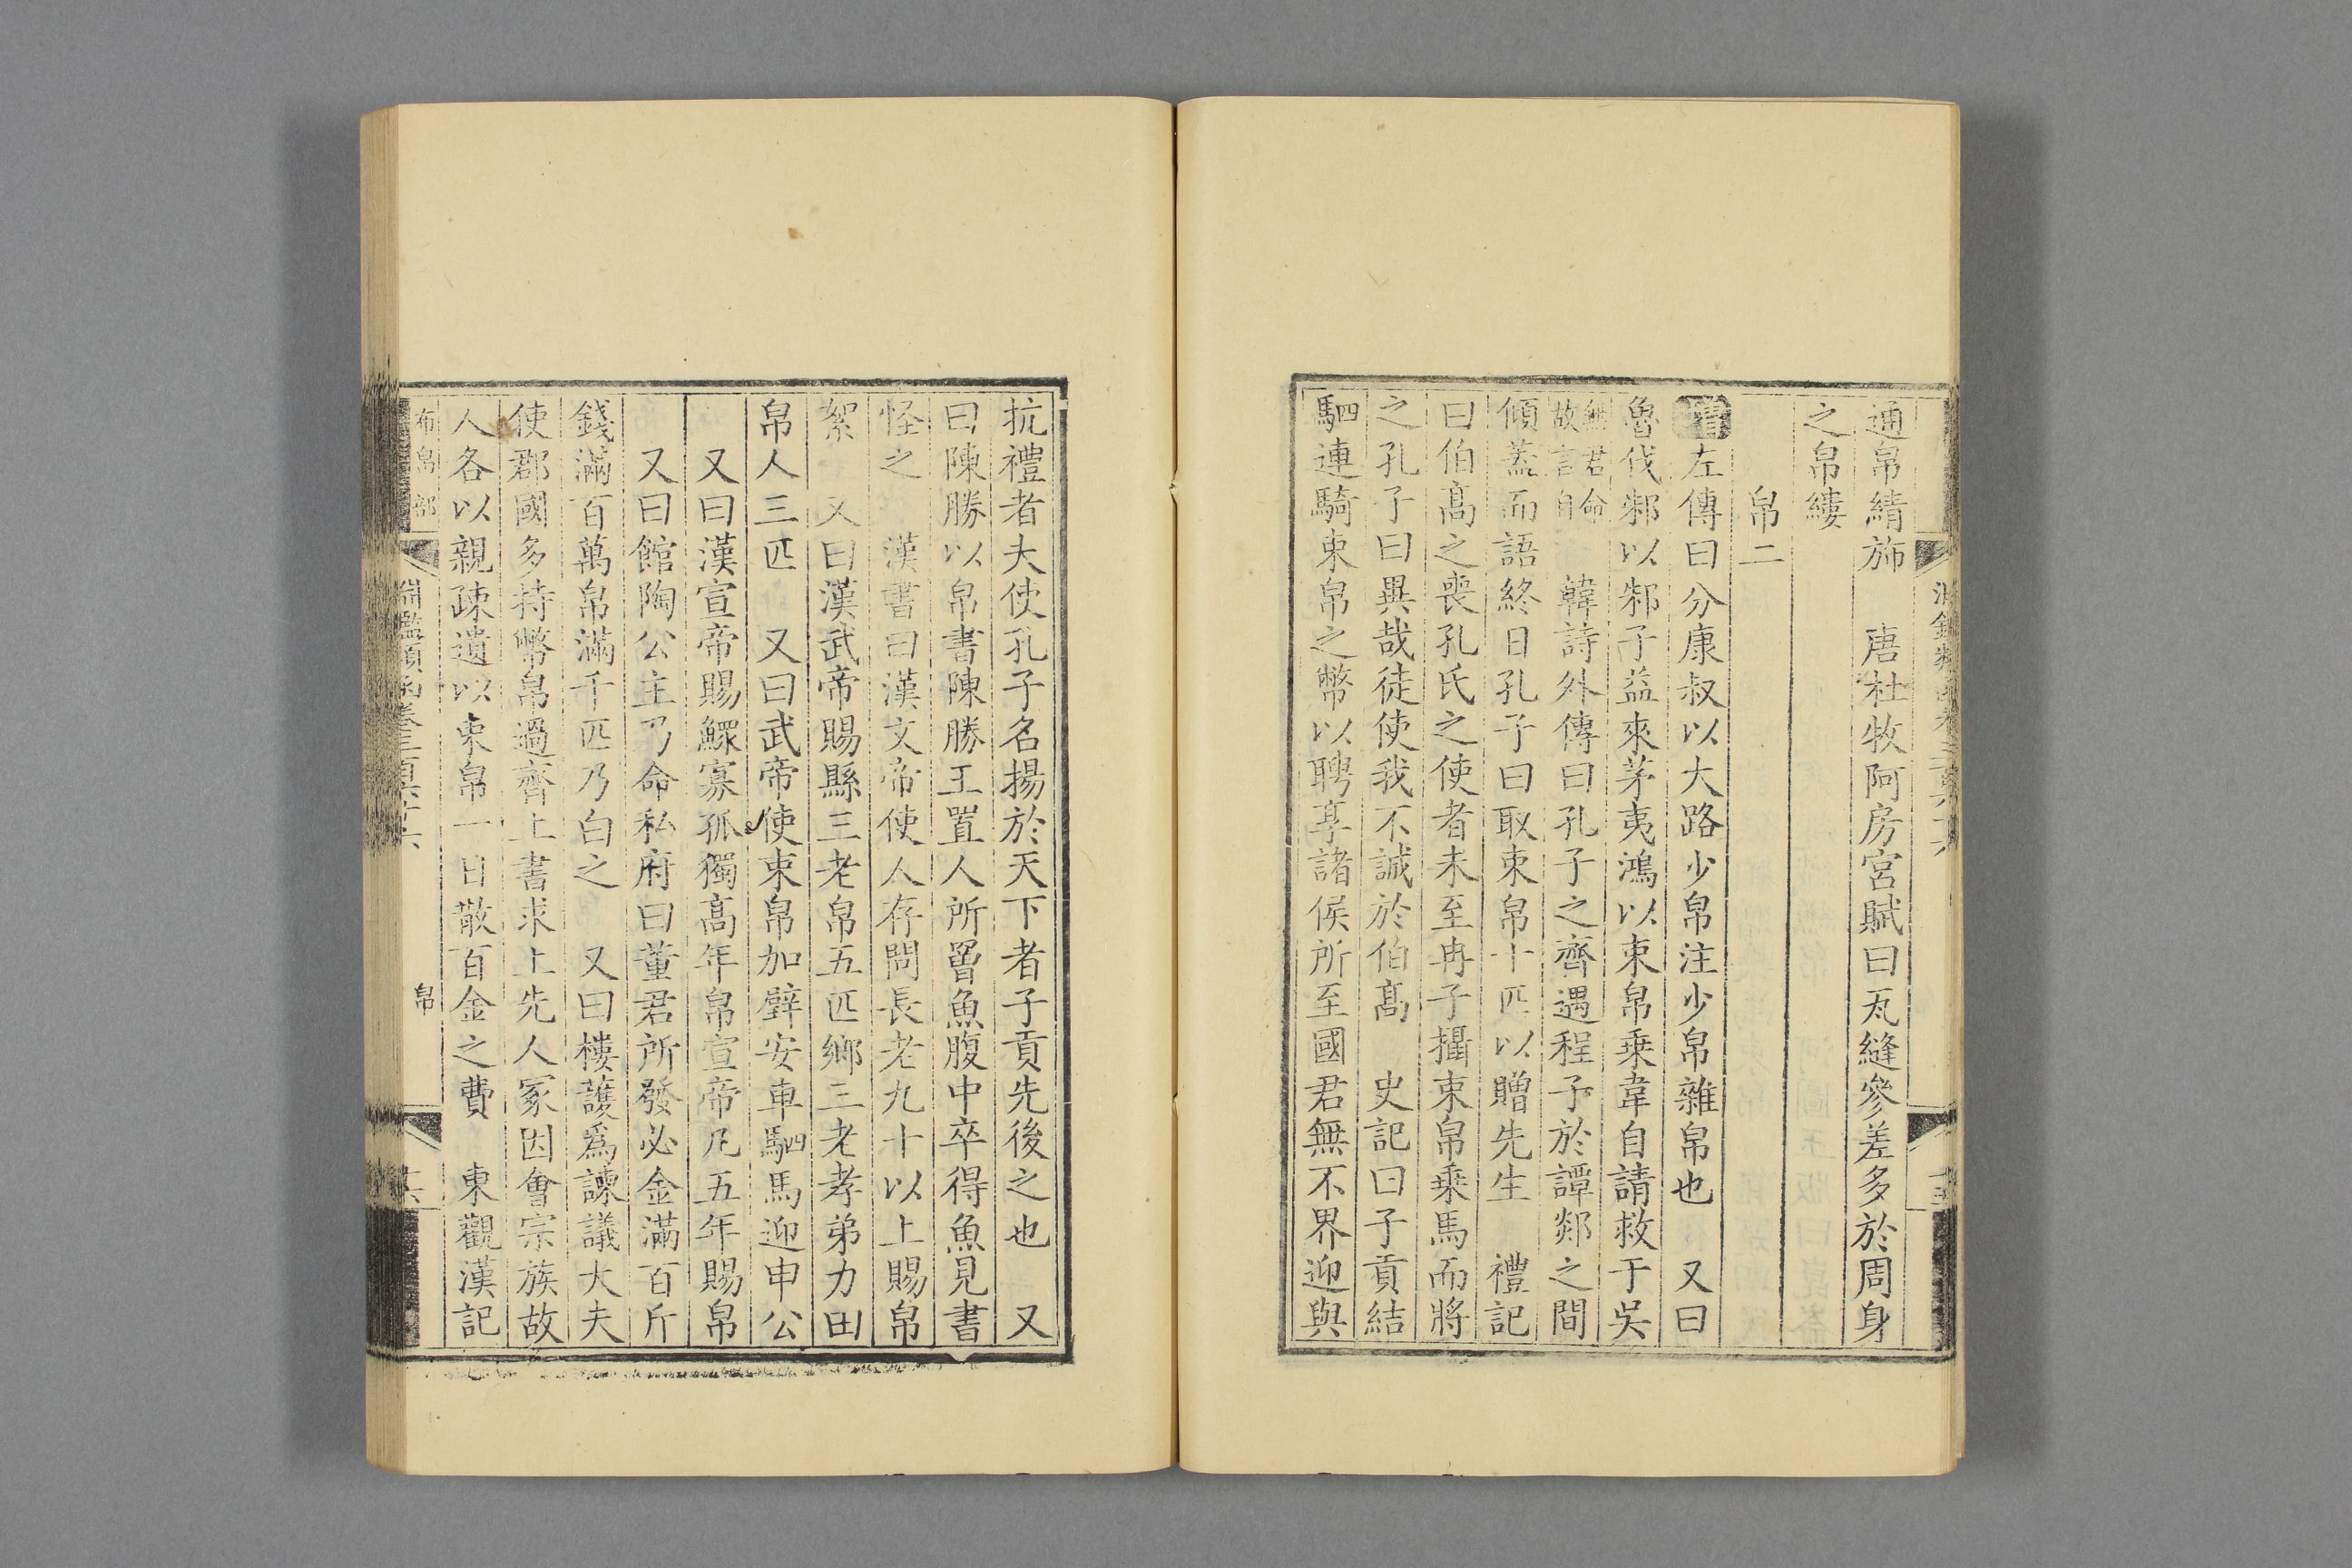 通帛綪斾　唐杜牧阿房宮賦曰瓦縫參差多於周身
之帛縷
帛二
增左傳曰分康叔以大路少帛注少帛雜帛也　又曰
魯伐邾以邾子益來茅夷鴻以束帛乗韋自請救于吳
無君命故言自　韓詩外傳曰孔子之齊遇程子於譚郯之間
傾蓋而語終日孔子曰取束帛十匹以贈先生　禮記
曰伯髙之喪孔氏之使者未至冉子攝束帛乗馬而將
之孔子曰異哉徒使我不誠於伯髙　史記曰子貢結
駟連騎束帛之幣以聘享諸侯所至國君無不界迎與
抗禮者夫使孔子名揚於天下者子貢先後之也　又
曰陳勝以帛書陳勝王置人所罾魚腹中卒得魚見書
怪之　漢書曰漢文帝使人存問長老九十以上賜帛
絮　又曰漢武帝賜縣三老帛五匹鄉三老孝弟力田
帛人三匹　又曰武帝使束帛加璧安車駟馬迎申公
又曰漢宣帝賜鰥寡孤獨髙年帛宣帝凡五年賜帛
又曰館陶公主乃命私府曰董君所發必金滿百斤
錢滿百萬帛滿千匹乃白之　又曰樓護爲諫議大夫
使郡國多持幣帛過齊上書求上先人冢因會宗族故
人各以親疎遺以束帛一日散百金之費　東觀漢記
布帛部
淵鑑類函卷三百六十六
帛
十六